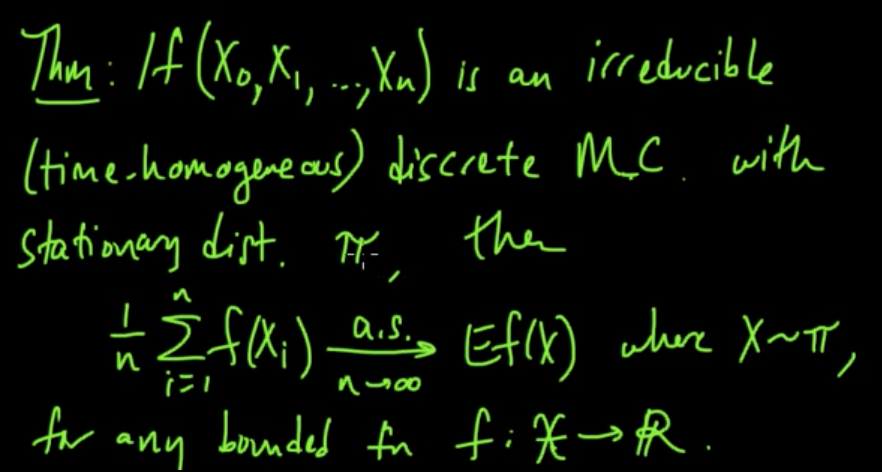 Thm: If (X₀, X₁, ..., Xₙ) is an irreducible
(time-homogeneous) discrete M.C. with
stationary dist. π, then
1/n ∑ᵢ₌₁ⁿ f(Xᵢ) a.s.→ n→∞ Ef(X) where X~π,
for any bounded fn f: 𝒳 → ℝ.